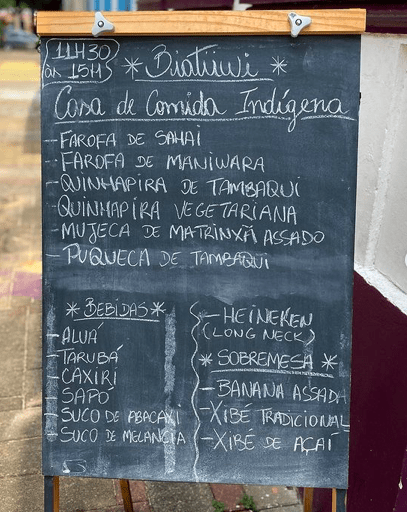 11H30
às 15HS
* Biatüwi *
Casa de Comida Indígena
- FAROFA DE SAHAI
- FAROFA DE MANIWARA
- QUINHAPIRA DE TAMBAQUI
- QUINHAPIRA VEGETARIANA
- MUJECA DE MATRINXÃ ASSADO
- PUQUECA DE TAMBAQUI
* BEBIDAS *
- ALUÁ
- TARUBÁ
- CAXIRI
- SAPÓ
- SUCO DE ABACAXI
- SUCO DE MELANCIA
- HEINEKEN
(LONG NECK)
* SOBREMESA *
- BANANA ASSADA
- XIBÉ TRADICIONAL
- XIBÉ DE AÇAÍ